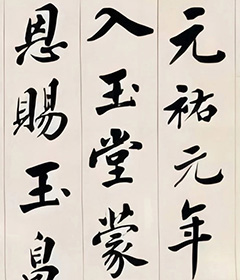 元祐元年
入玉堂蒙
恩賜玉